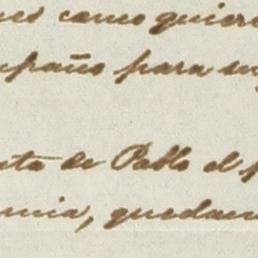 nes como quiera
mpaño para su
nta de Pablo el
mia, quedam